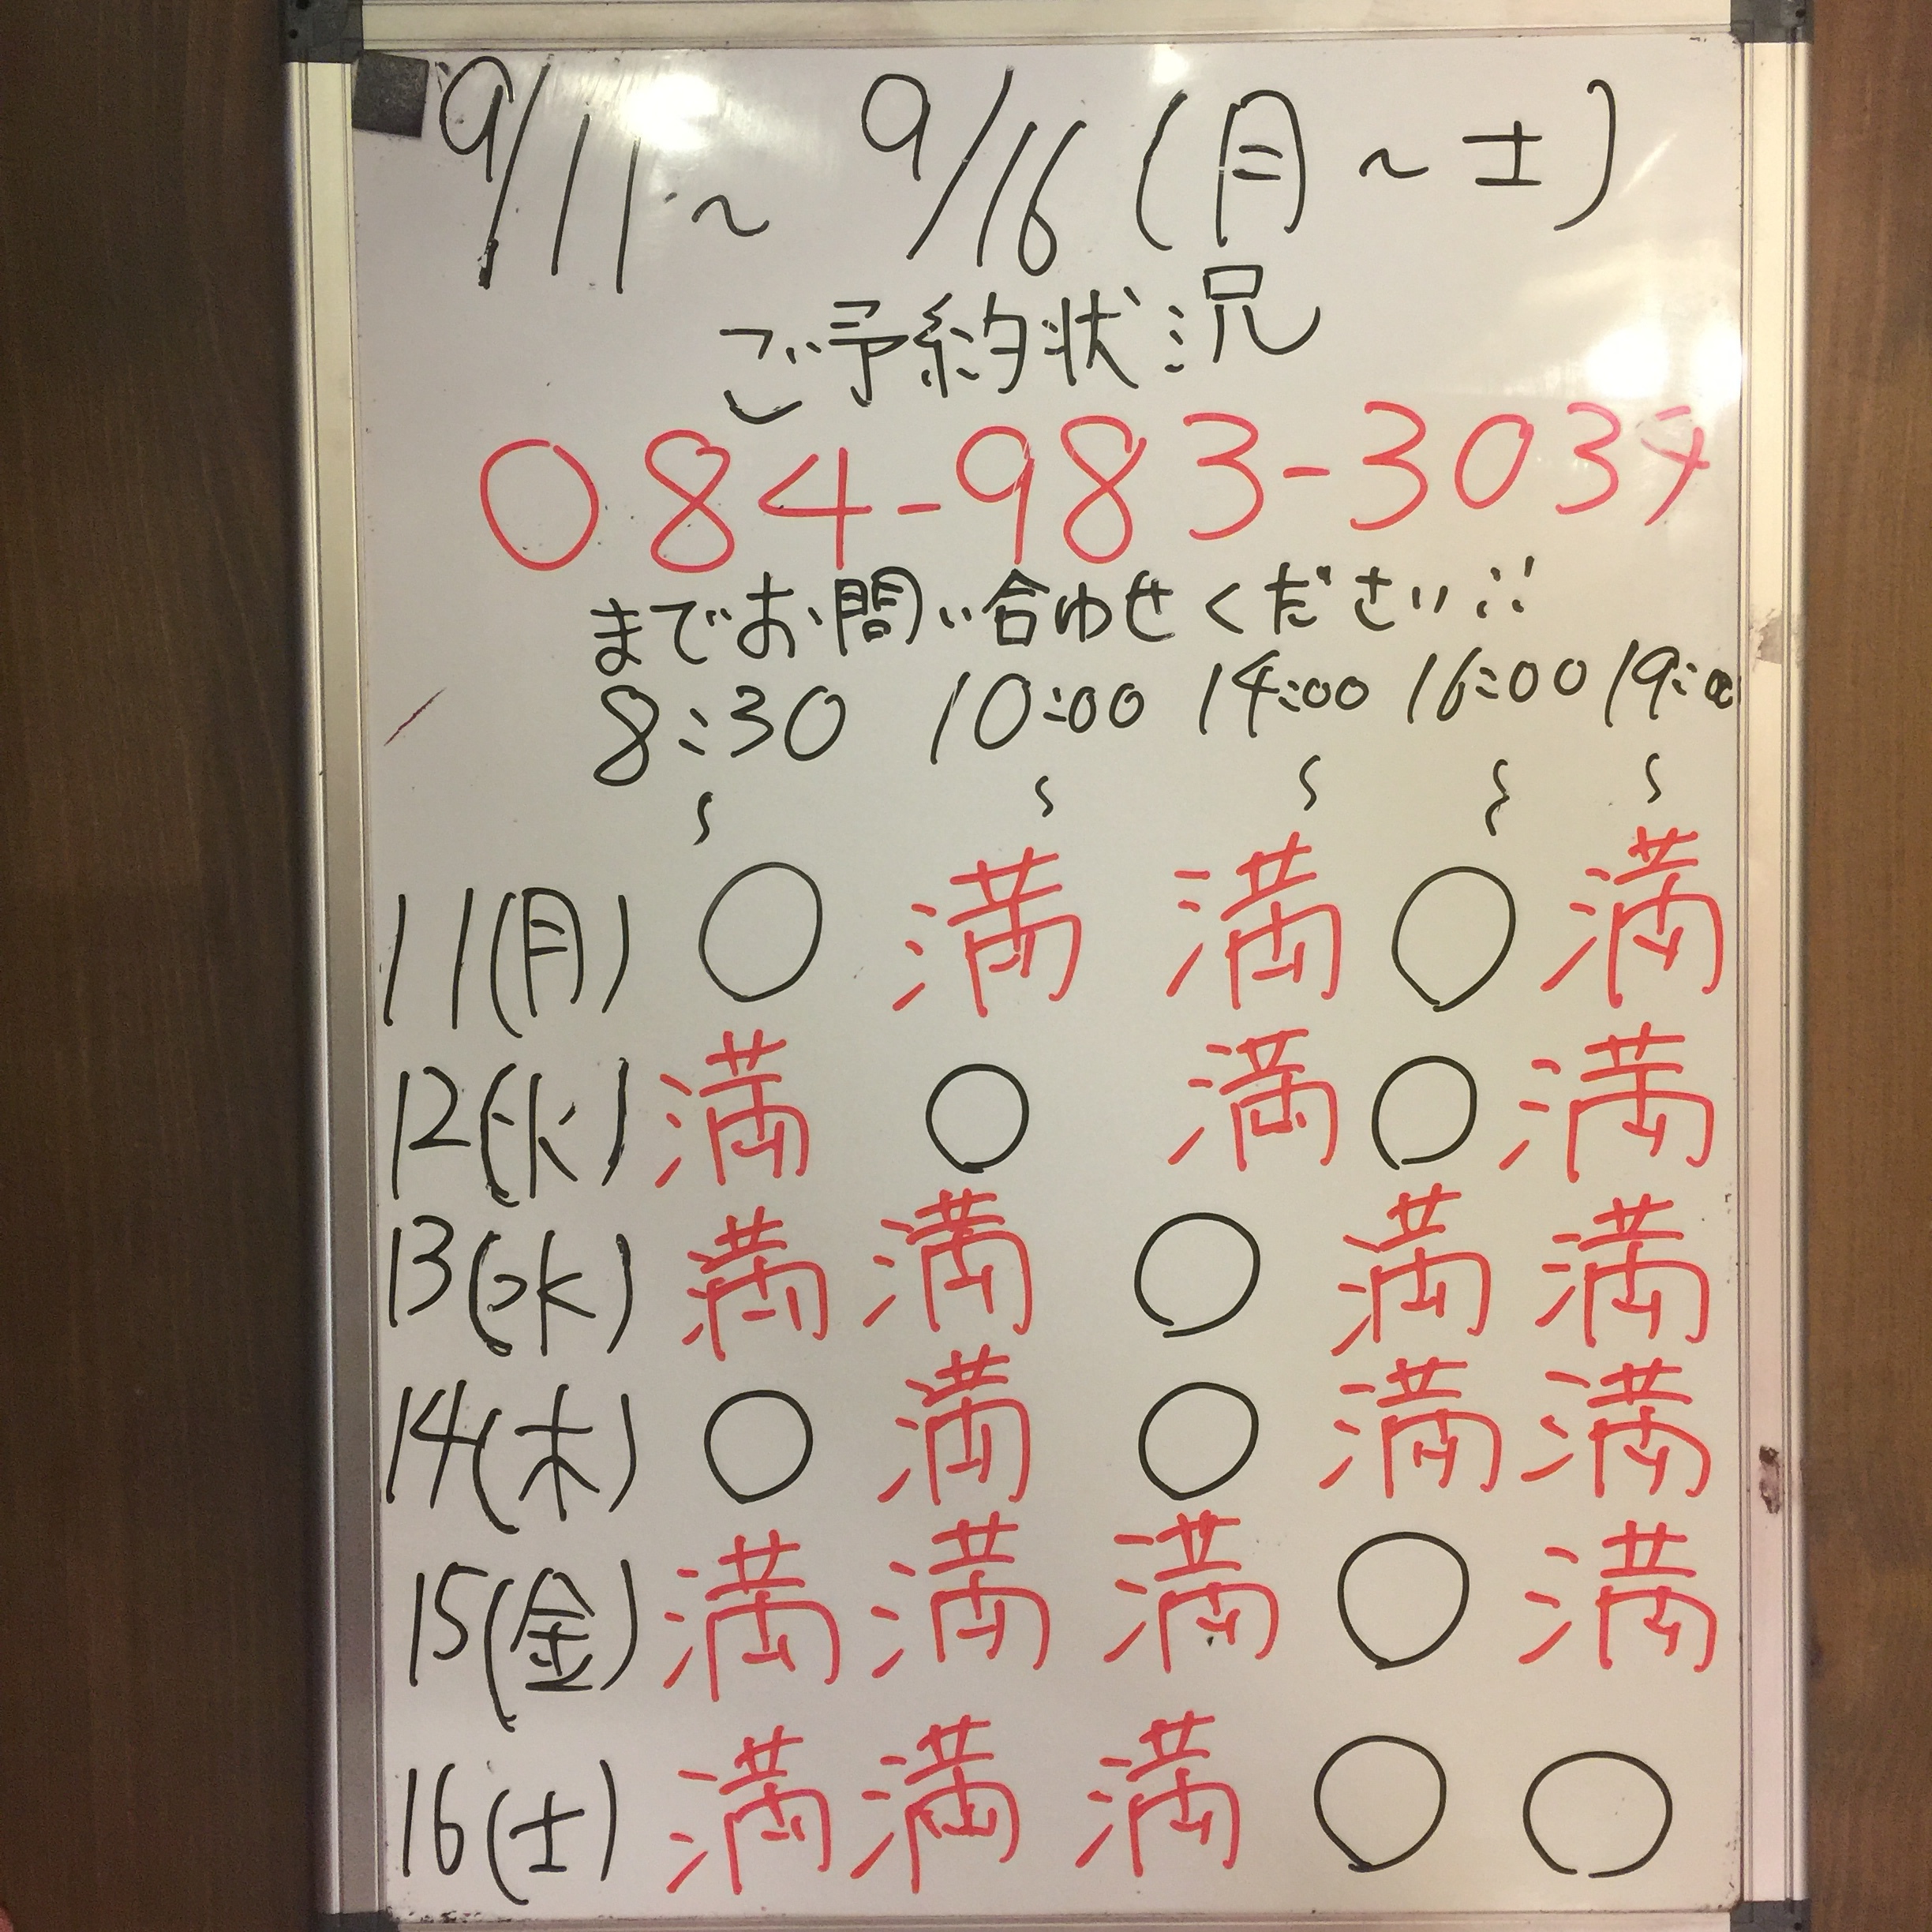 9/11~ 9/16(月~土)
ご予約状況
084-983-3034
までお問い合わせください!!
8:30 10:00 14:00 16:00 19:00
~ ~ ~ ~ ~
11(月) ○ 満 満 ○ 満
12(火) 満 ○ 満 ○ 満
13(水) 満 満 ○ 満 満
14(木) ○ 満 ○ 満 満
15(金) 満 満 満 ○ 満
16(土) 満 満 満 ○ ○